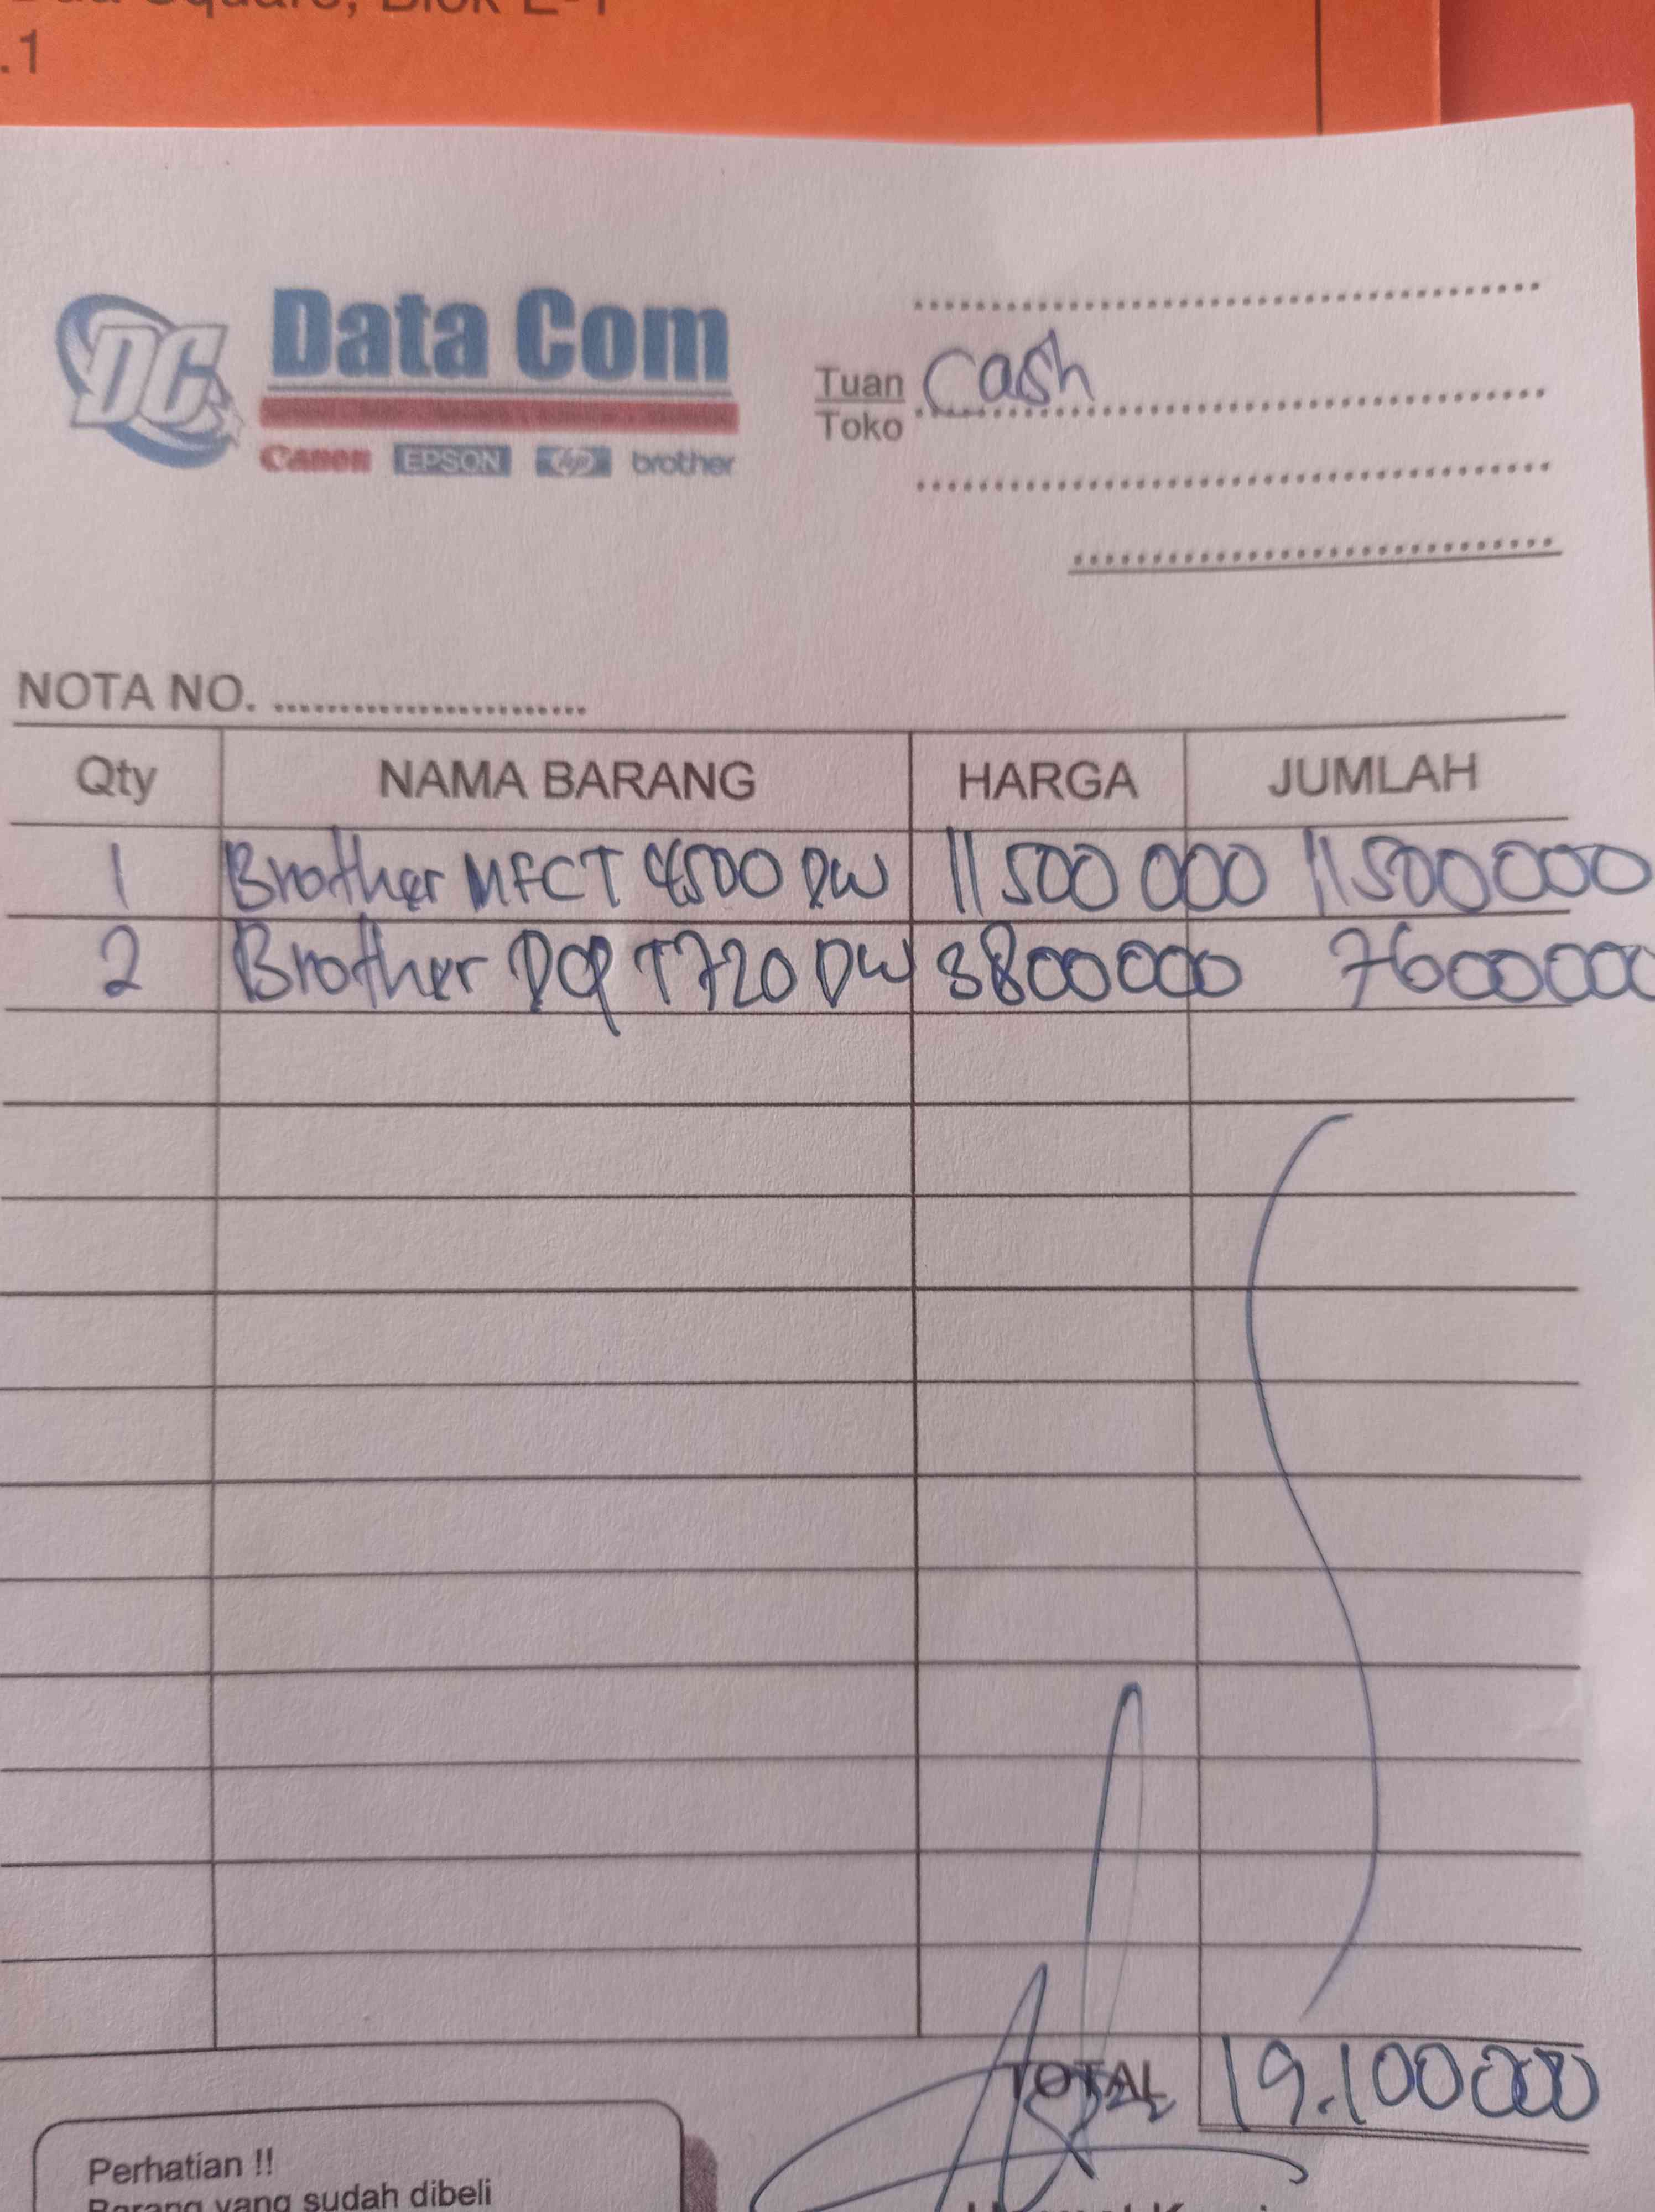 .1
Data Com
Canon EPSON hp brother
DC
Tuan Cash
Toko
NOTA NO. ........................
Qty NAMA BARANG HARGA JUMLAH
1 Brother MFCT 4500 DW 11 500 000 11500000
2 Brother DCP T720 DW 3800000 7600000
TOTAL 19.100000
Perhatian !!
Barang yang sudah dibeli